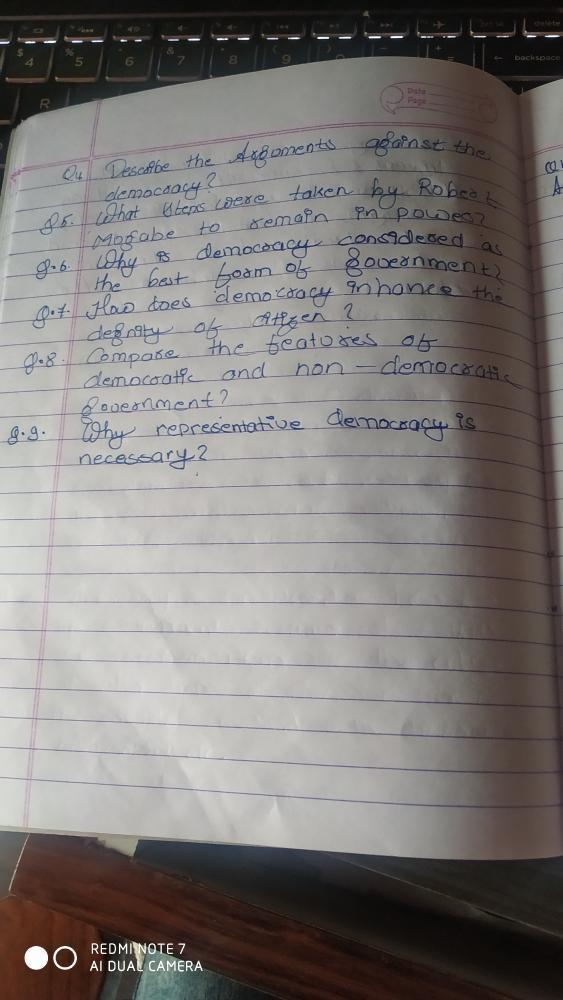 $ 4
% 5
^ 6
& 7
* 8
( 9
)
+ =
delete
← backspace
R
Date
Page
Q4. Describe the Argoments against the
democracy?
Q.5. What Steps were taken by Robert
Mogabe to remain in power?
Q.6. Why is democracy considered as
the best form of government?
Q.7. How does democracy inhance the
degnity of citizen?
Q.8. Compare the features of
democratic and non-democratic
government?
Q.9. Why representative democracy is
necessary?
REDMI NOTE 7
AI DUAL CAMERA